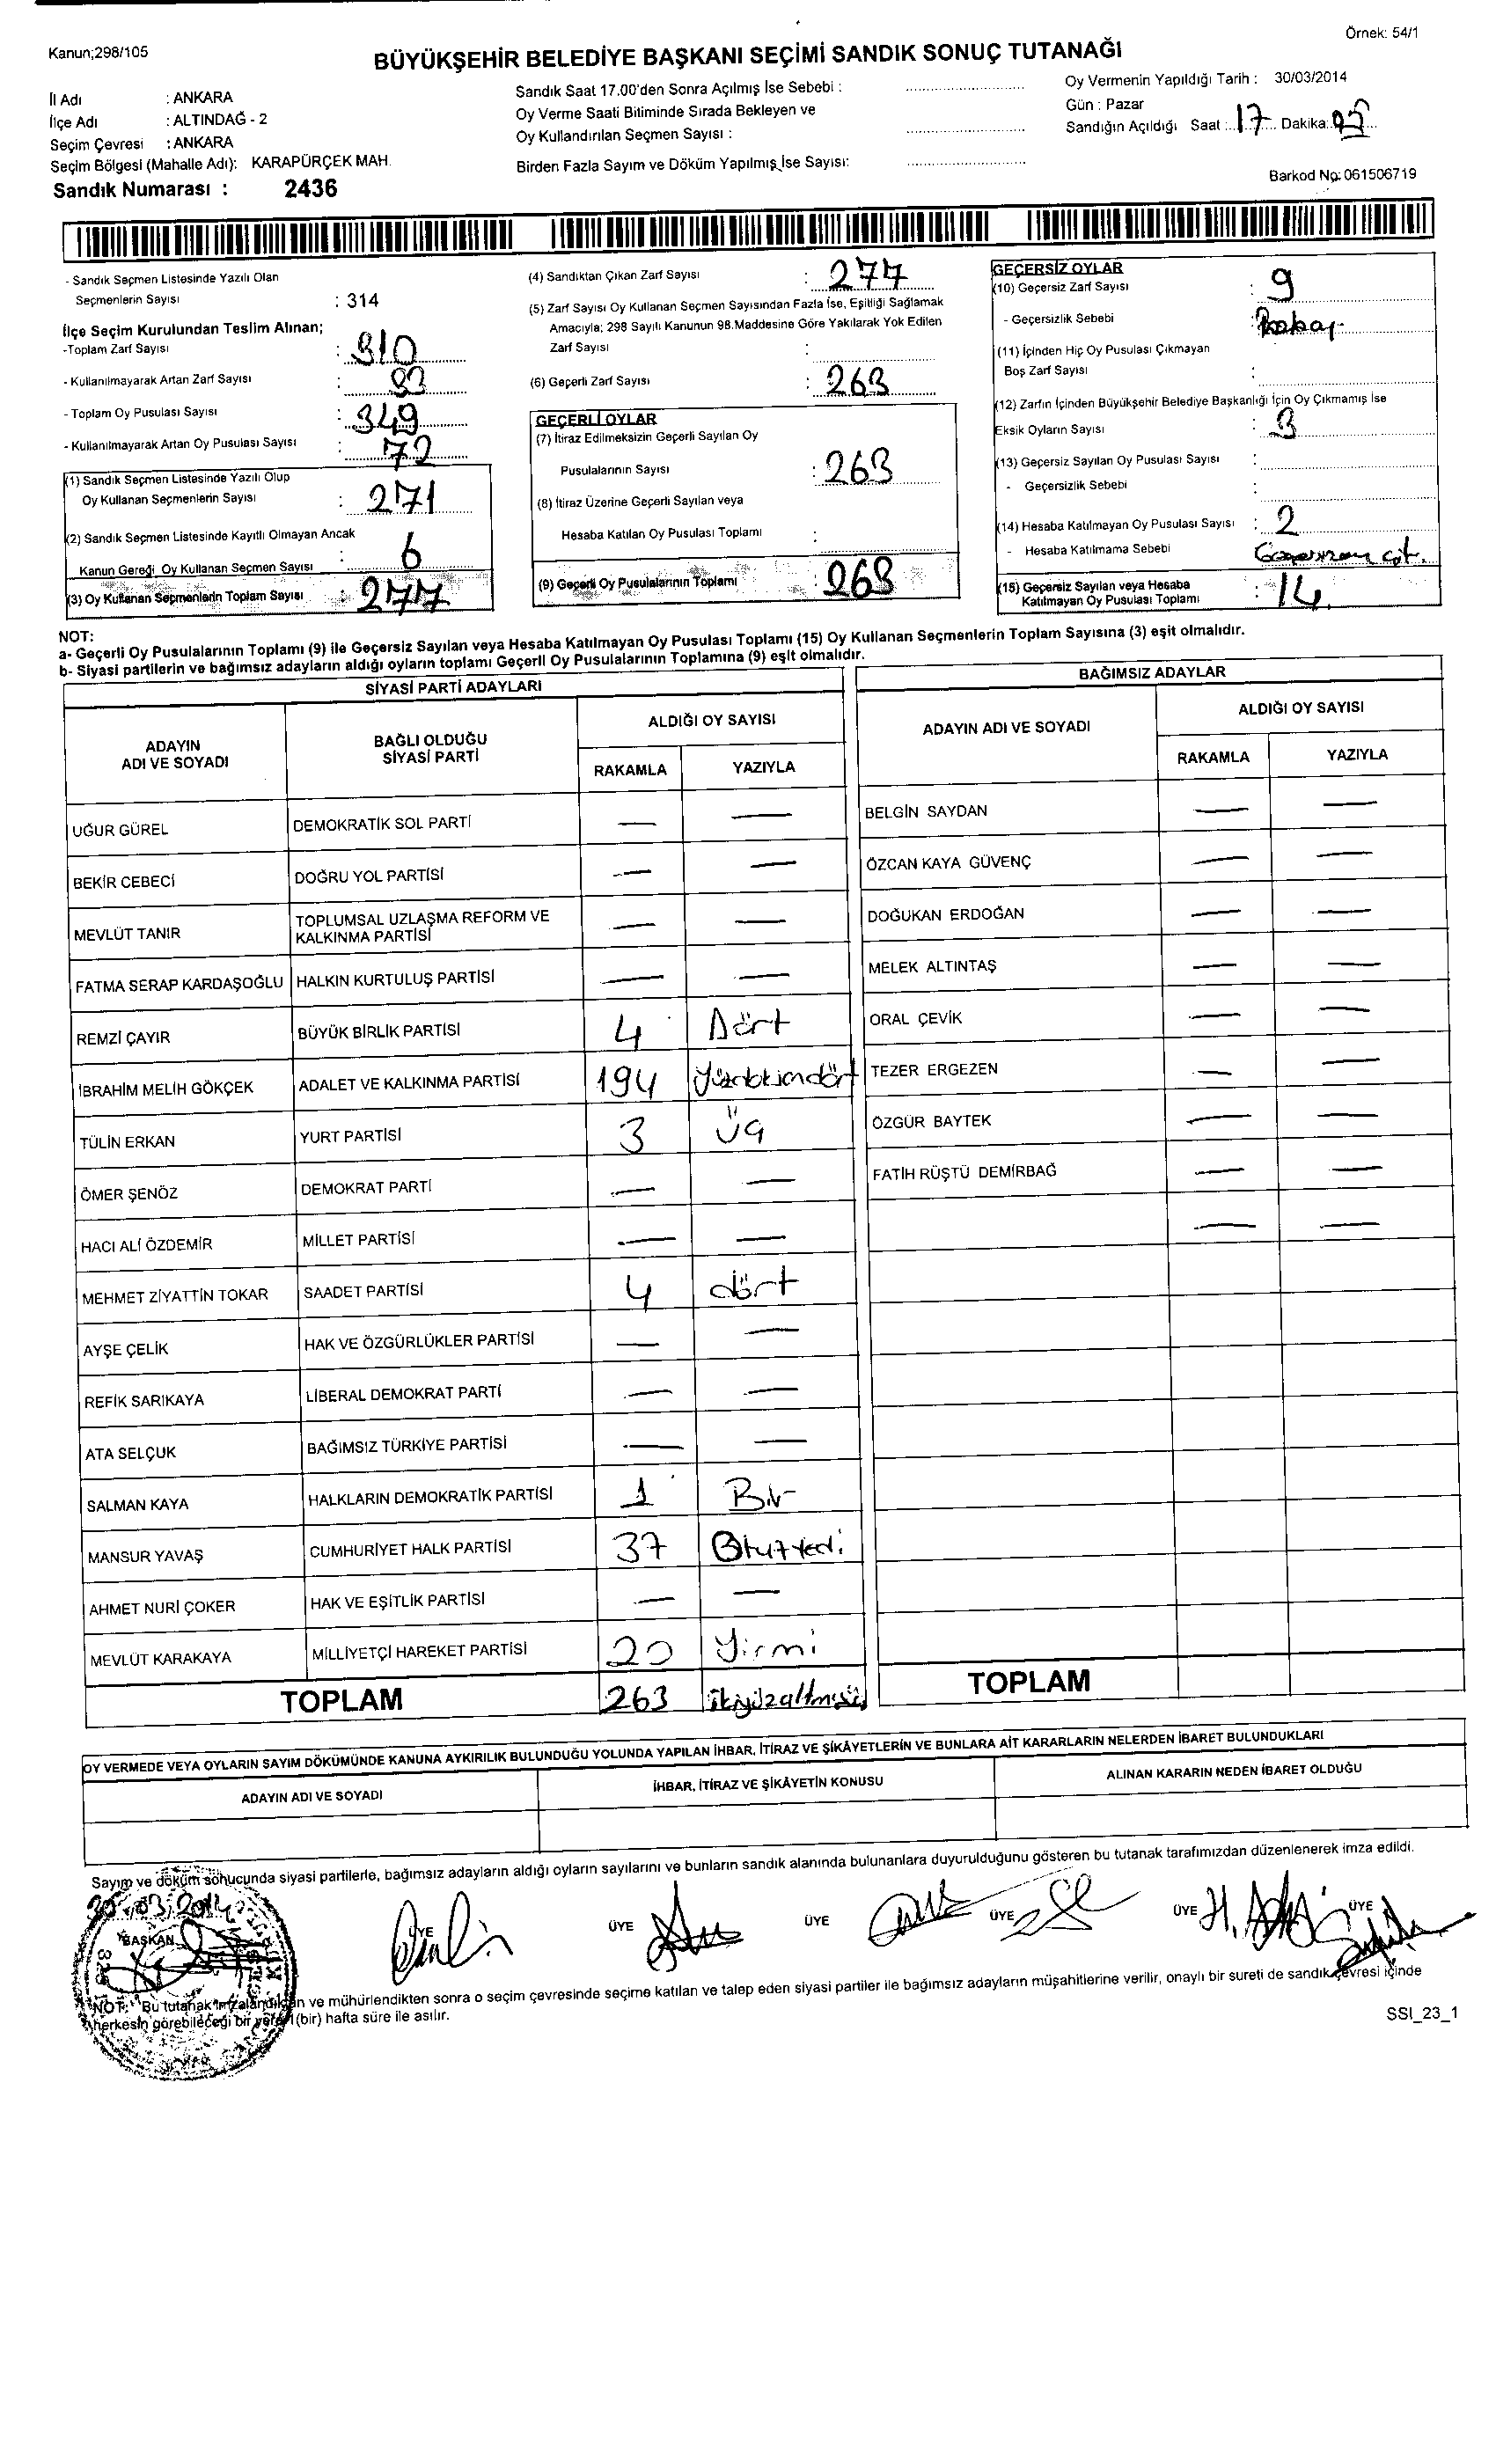 Örnek: 54/1
Kanun;298/105
BÜYÜKŞEHİR BELEDİYE BAŞKANI SEÇİMİ SANDIK SONUÇ TUTANAĞI
İl Adı : ANKARA
İlçe Adı : ALTINDAĞ - 2
Seçim Çevresi : ANKARA
Seçim Bölgesi (Mahalle Adı): KARAPÜRÇEK MAH.
Sandık Numarası : 2436
Sandık Saat 17.00'den Sonra Açılmış İse Sebebi :
Oy Verme Saati Bitiminde Sırada Bekleyen ve
Oy Kullandırılan Seçmen Sayısı :
Birden Fazla Sayım ve Döküm Yapılmış İse Sayısı:
Oy Vermenin Yapıldığı Tarih : 30/03/2014
Gün : Pazar
Sandığın Açıldığı Saat : 17 Dakika:
Barkod No: 061506719
- Sandık Seçmen Listesinde Yazılı Olan
Seçmenlerin Sayısı : 314
İlçe Seçim Kurulundan Teslim Alınan;
-Toplam Zarf Sayısı : 310
- Kullanılmayarak Artan Zarf Sayısı :
- Toplam Oy Pusulası Sayısı : 349
- Kullanılmayarak Artan Oy Pusulası Sayısı : 72
(1) Sandık Seçmen Listesinde Yazılı Olup
Oy Kullanan Seçmenlerin Sayısı : 271
(2) Sandık Seçmen Listesinde Kayıtlı Olmayan Ancak
Kanun Gereği Oy Kullanan Seçmen Sayısı : 6
(3) Oy Kullanan Seçmenlerin Toplam Sayısı : 277
(4) Sandıktan Çıkan Zarf Sayısı : 277
(5) Zarf Sayısı Oy Kullanan Seçmen Sayısından Fazla İse, Eşitliği Sağlamak
Amacıyla; 298 Sayılı Kanunun 98.Maddesine Göre Yakılarak Yok Edilen
Zarf Sayısı :
(6) Geçerli Zarf Sayısı : 268
GEÇERLİ OYLAR
(7) İtiraz Edilmeksizin Geçerli Sayılan Oy
Pusulalarının Sayısı : 263
(8) İtiraz Üzerine Geçerli Sayılan veya
Hesaba Katılan Oy Pusulası Toplamı :
(9) Geçerli Oy Pusulalarının Toplamı : 263
GEÇERSİZ OYLAR
(10) Geçersiz Zarf Sayısı : 9
- Geçersizlik Sebebi :
(11) İçinden Hiç Oy Pusulası Çıkmayan
Boş Zarf Sayısı :
(12) Zarfın İçinden Büyükşehir Belediye Başkanlığı İçin Oy Çıkmamış İse
Eksik Oyların Sayısı : 3
(13) Geçersiz Sayılan Oy Pusulası Sayısı :
- Geçersizlik Sebebi :
(14) Hesaba Katılmayan Oy Pusulası Sayısı : 2
- Hesaba Katılmama Sebebi
(15) Geçersiz Sayılan veya Hesaba
Katılmayan Oy Pusulası Toplamı : 14
NOT:
a- Geçerli Oy Pusulalarının Toplamı (9) ile Geçersiz Sayılan veya Hesaba Katılmayan Oy Pusulası Toplamı (15) Oy Kullanan Seçmenlerin Toplam Sayısına (3) eşit olmalıdır.
b- Siyasi partilerin ve bağımsız adayların aldığı oyların toplamı Geçerli Oy Pusulalarının Toplamına (9) eşit olmalıdır.
SİYASİ PARTİ ADAYLARI
ADAYIN ADI VE SOYADI BAĞLI OLDUĞU SİYASİ PARTİ ALDIĞI OY SAYISI
RAKAMLA YAZIYLA
UĞUR GÜREL DEMOKRATİK SOL PARTİ — —
BEKİR CEBECİ DOĞRU YOL PARTİSİ — —
MEVLÜT TANIR TOPLUMSAL UZLAŞMA REFORM VE KALKINMA PARTİSİ — —
FATMA SERAP KARDAŞOĞLU HALKIN KURTULUŞ PARTİSİ — —
REMZİ ÇAYIR BÜYÜK BİRLİK PARTİSİ 4 Dört
İBRAHİM MELİH GÖKÇEK ADALET VE KALKINMA PARTİSİ 194
TÜLİN ERKAN YURT PARTİSİ 3 Üç
ÖMER ŞENÖZ DEMOKRAT PARTİ — —
HACI ALİ ÖZDEMİR MİLLET PARTİSİ — —
MEHMET ZİYATTİN TOKAR SAADET PARTİSİ 4 dört
AYŞE ÇELİK HAK VE ÖZGÜRLÜKLER PARTİSİ — —
REFİK SARIKAYA LİBERAL DEMOKRAT PARTİ — —
ATA SELÇUK BAĞIMSIZ TÜRKİYE PARTİSİ — —
SALMAN KAYA HALKLARIN DEMOKRATİK PARTİSİ 1 Bir
MANSUR YAVAŞ CUMHURİYET HALK PARTİSİ 37 Otuzyedi
AHMET NURİ ÇOKER HAK VE EŞİTLİK PARTİSİ — —
MEVLÜT KARAKAYA MİLLİYETÇİ HAREKET PARTİSİ 20 Yirmi
TOPLAM 263 ikiyüzaltmışüç
BAĞIMSIZ ADAYLAR
ADAYIN ADI VE SOYADI ALDIĞI OY SAYISI
RAKAMLA YAZIYLA
BELGİN SAYDAN — —
ÖZCAN KAYA GÜVENÇ — —
DOĞUKAN ERDOĞAN — —
MELEK ALTINTAŞ — —
ORAL ÇEVİK — —
TEZER ERGEZEN — —
ÖZGÜR BAYTEK — —
FATİH RÜŞTÜ DEMİRBAĞ — —
— —
TOPLAM
OY VERMEDE VEYA OYLARIN SAYIM DÖKÜMÜNDE KANUNA AYKIRILIK BULUNDUĞU YOLUNDA YAPILAN İHBAR, İTİRAZ VE ŞİKÂYETLERİN VE BUNLARA AİT KARARLARIN NELERDEN İBARET BULUNDUKLARI
ADAYIN ADI VE SOYADI İHBAR, İTİRAZ VE ŞİKÂYETİN KONUSU ALINAN KARARIN NEDEN İBARET OLDUĞU
Sayım ve döküm sonucunda siyasi partilerle, bağımsız adayların aldığı oyların sayılarını ve bunların sandık alanında bulunanlara duyurulduğunu gösteren bu tutanak tarafımızdan düzenlenerek imza edildi.
30.03.2014
BAŞKAN ÜYE ÜYE ÜYE ÜYE ÜYE ÜYE
NOT: Bu tutanak imzalandıktan ve mühürlendikten sonra o seçim çevresinde seçime katılan ve talep eden siyasi partiler ile bağımsız adayların müşahitlerine verilir, onaylı bir sureti de sandık çevresi içinde
herkesin görebileceği bir yere 1 (bir) hafta süre ile asılır.
SSI_23_1